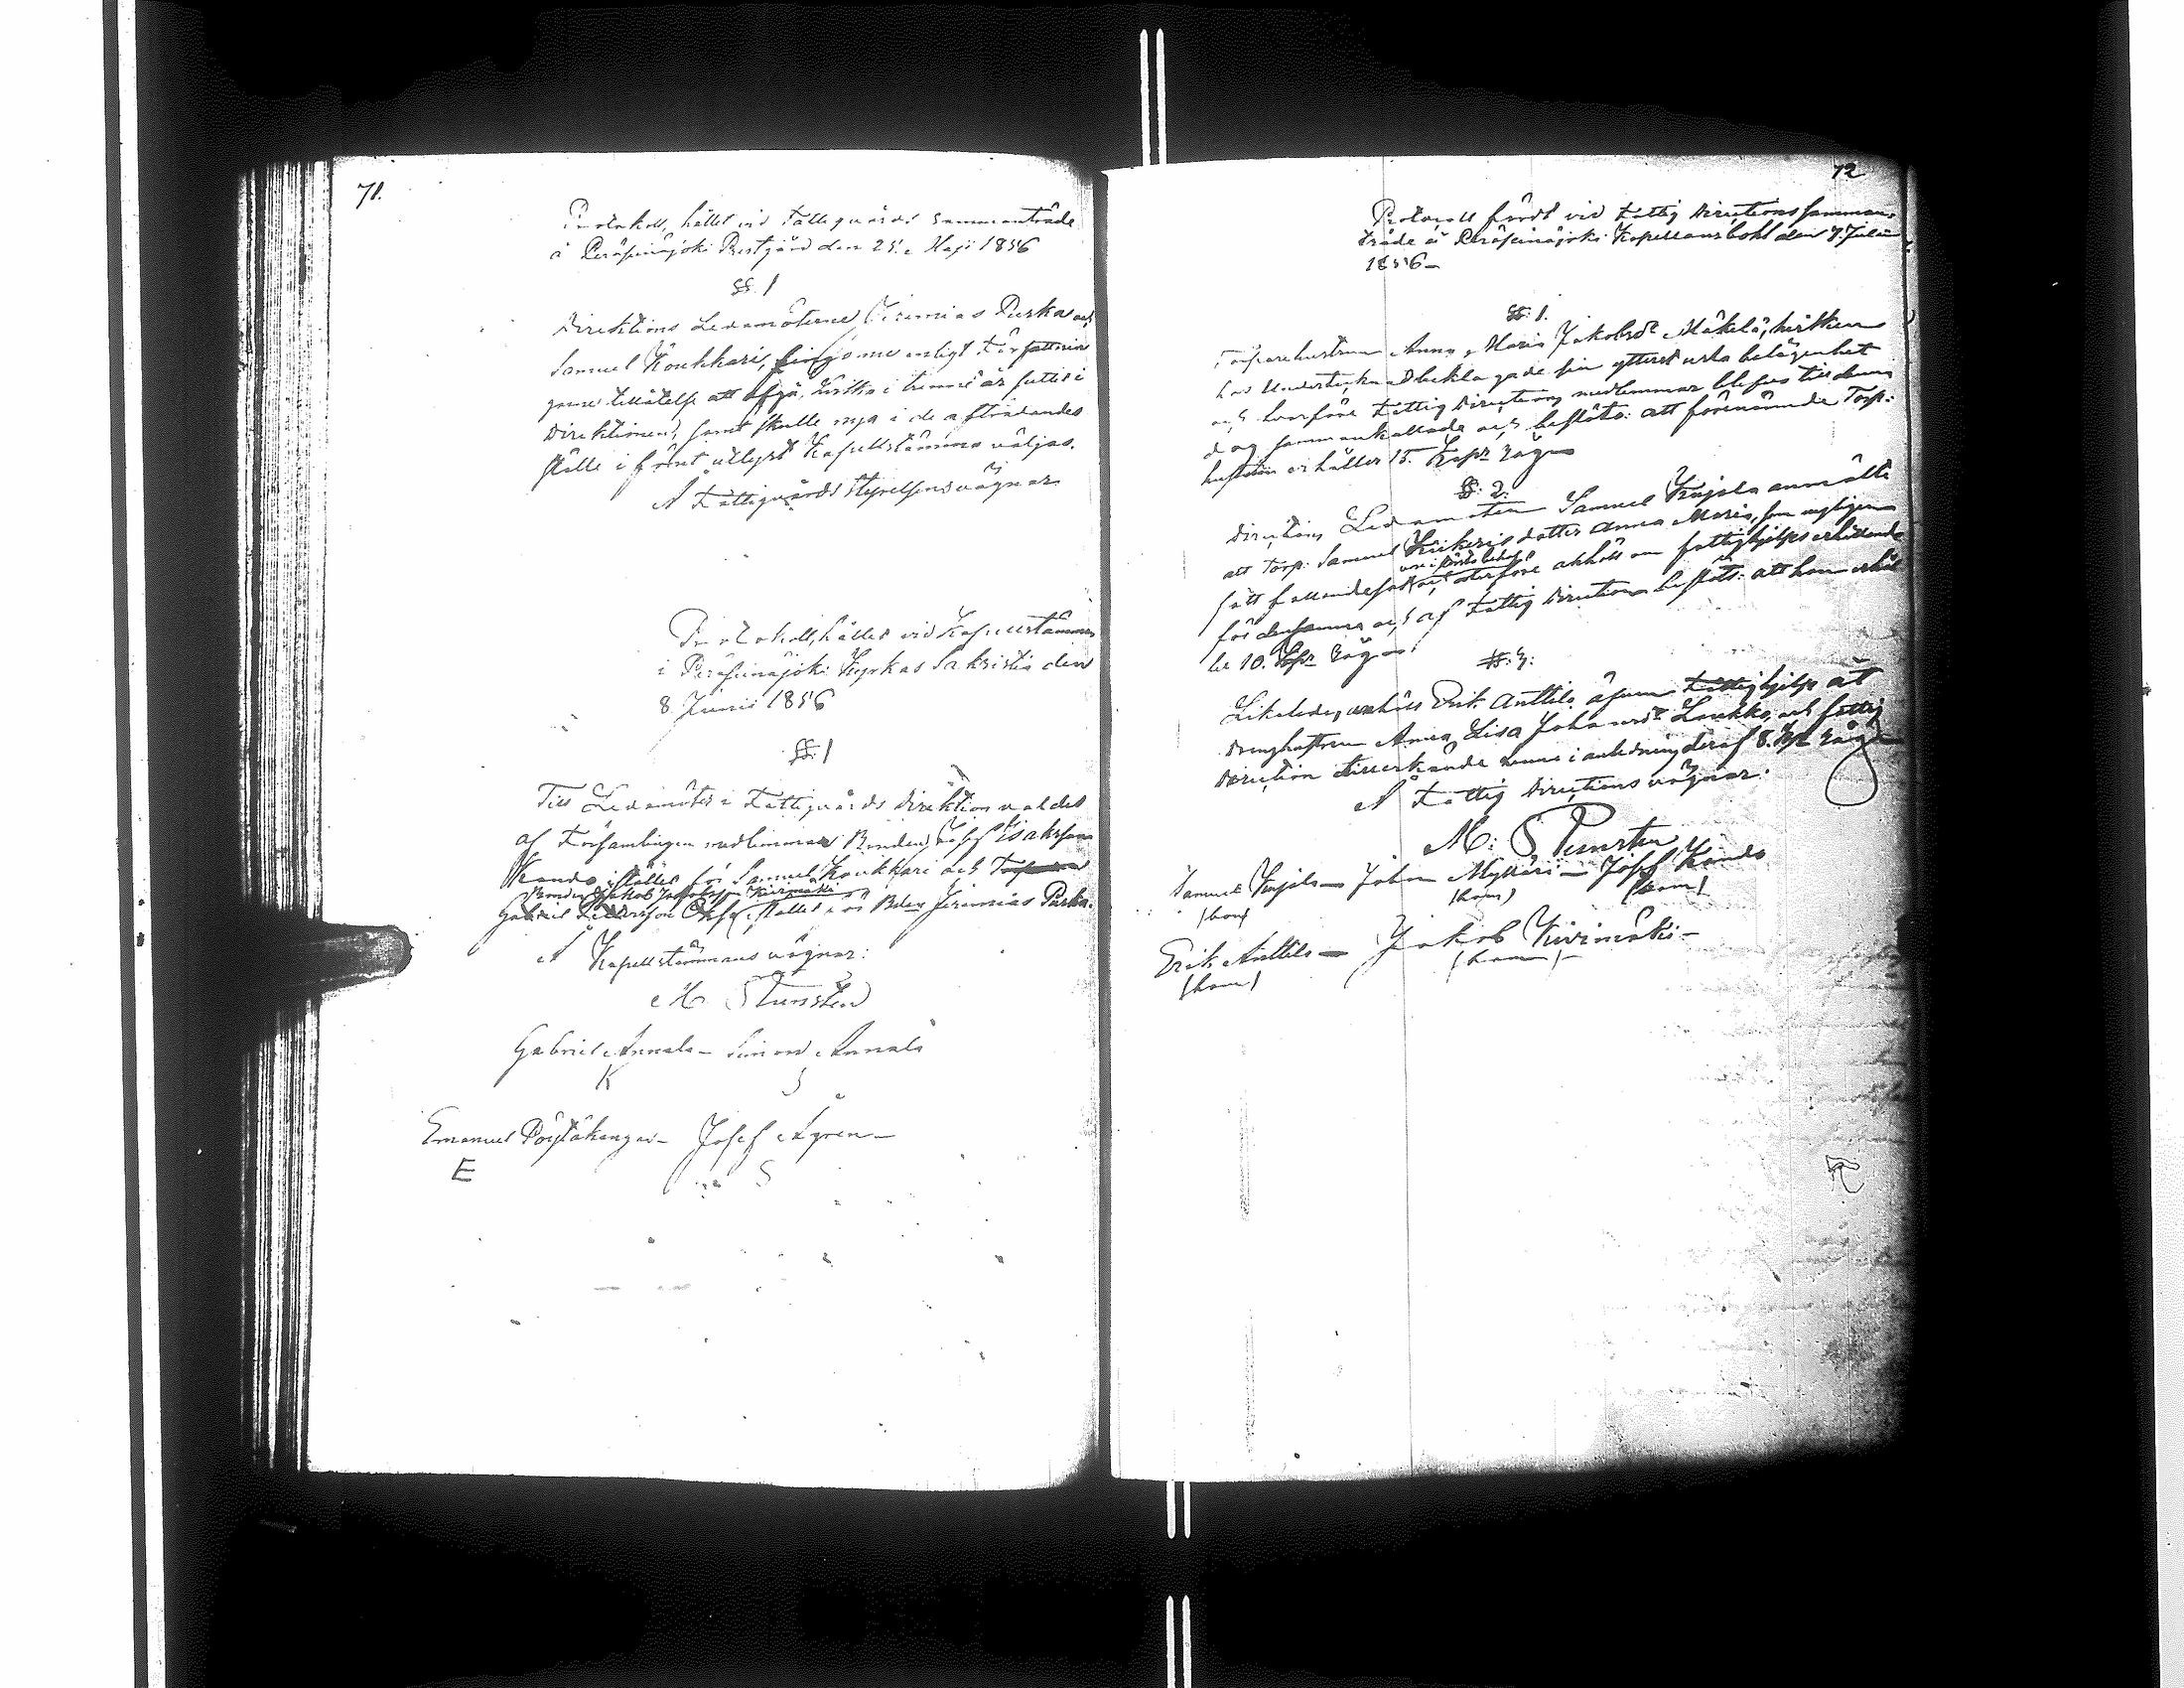 71.
Protokoll, hållet vid Fattigvårds sammanträde
å Peräseinäjoki Prestgård den 25:e Maji 1856
§§. 1
Direktions Ledamöterne Jeremias Purka och
Samuel Koukkari, fingo nu enligt Författnin
garne tillåtelse att afgå, hvilka i trenne år suttit i
Direktionen, samt skulle nya i de afträdandes
ställe i främst utlyst Kapellstämma väljas.
Å Fattigvårds Styrelsens vägnar
Protokoll, hållet vid Kapellstämma
i Peräseinäjoki Kyrkas Sakristia den
8 Junii 1856
§§. 1
Till Ledamöter i Fattigvårds direktion valdes
af Församlingens medlemmar Bonden Josef Isaksson
Kando istället för Samuel Koukkari och
Bonden Jakob Jakobsson Kivimäki
Gabriel istället för Bden Jeremias Purka.
Å Kapellstämmans vägnar:
M Tunsten
Gabriel Annala – Simon Annala
K S
Emanuel – Josef Ågren –
E S
72
Protocoll fördt vid Fattig Directions samman-
träde å Peräseinäjoki Kapellansbohl den 7. Julii
1856 –
§§. 1.
Torparehustrun Anna Maria Jakobsdr Mäkelä, hvilken
hos Undertecknad beklagade sin ytterst usla belägenhet
och hvarföre Fattig Directions medlemmar blefvo till denna
dag sammankallade och beslöts: att förenämnde Torp.
hustrun erhåller 15. Kapr Råg
§§. 2.
Directions Ledamoten Samuel Kujala anmälte
att Torp. Samuel dotter Anna Maria, som nyligen
fått fallandesot och derföre anhöll om fattighjelps erhållande
för densamma och af Fattig Direction beslöts: att hon erhål
ler 10. Kapr Råg
§§. 3:
Likaledes anhöll Erik Anttila äfven Fattighjelp åt
Drenghustrun Anna Lisa Johansdr Laukko, och fattig
Direction tillerkände henne i anledning deraf 8. Kpr Råg
Å Fattig Directions vägnar:
M: Tunsten
Samuel Kujala – Johan Mylläri – Josef Kando
(bom) (bom) (bom)
Erik Anttila – Jakob Kivimäki –
(bom) (bom)